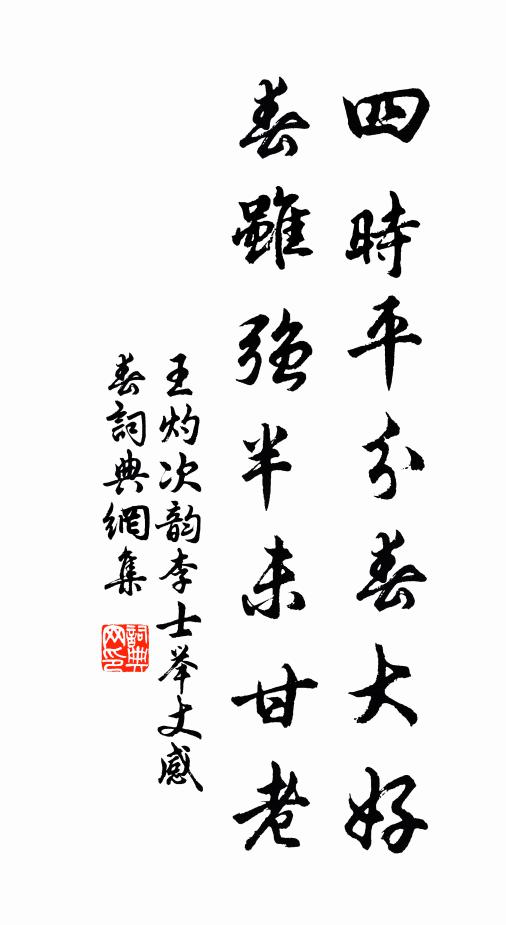 四時平分春大好
春雖強半未甘老
王灼次韵李士举丈感
春詞典網集
詞典網印